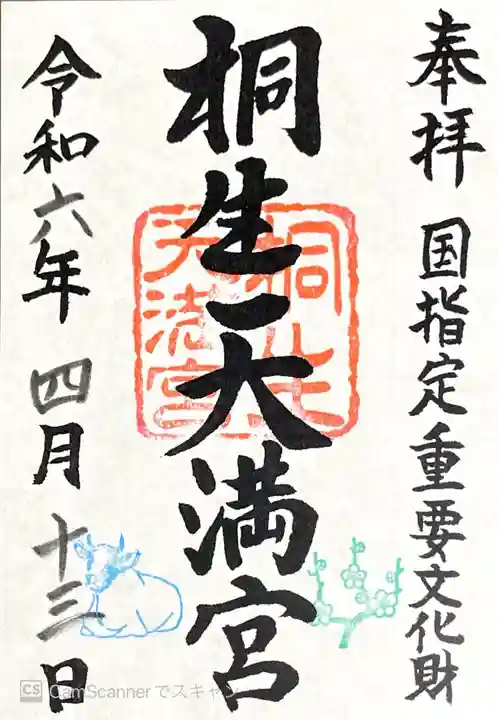 奉拝 国指定重要文化財
桐生天満宮
桐生
天満宮
令和六年 四月 十三日
CS CamScannerでスキャン